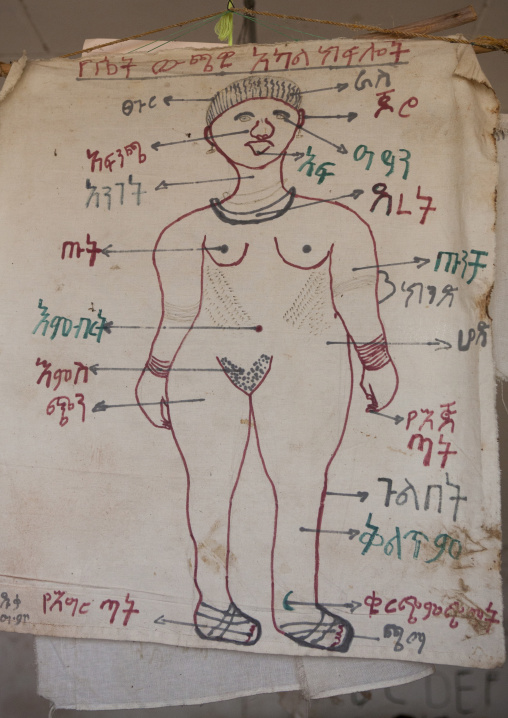 የሴት ውጫዊ አካል ክፍሎች
ፀጉር
ራስ
ጆሮ
አፍንጫ
አፍ
ዓይን
አንገት
ደረት
ጡት
ጡንቻ
ክንድ
እምብርት
ሆድ
እምስ
ጭን
የእጅ
ጣት
ጉልበት
ቅልጥም
የእግር ጣት
ቁርጭምጭሚት
ጫማ